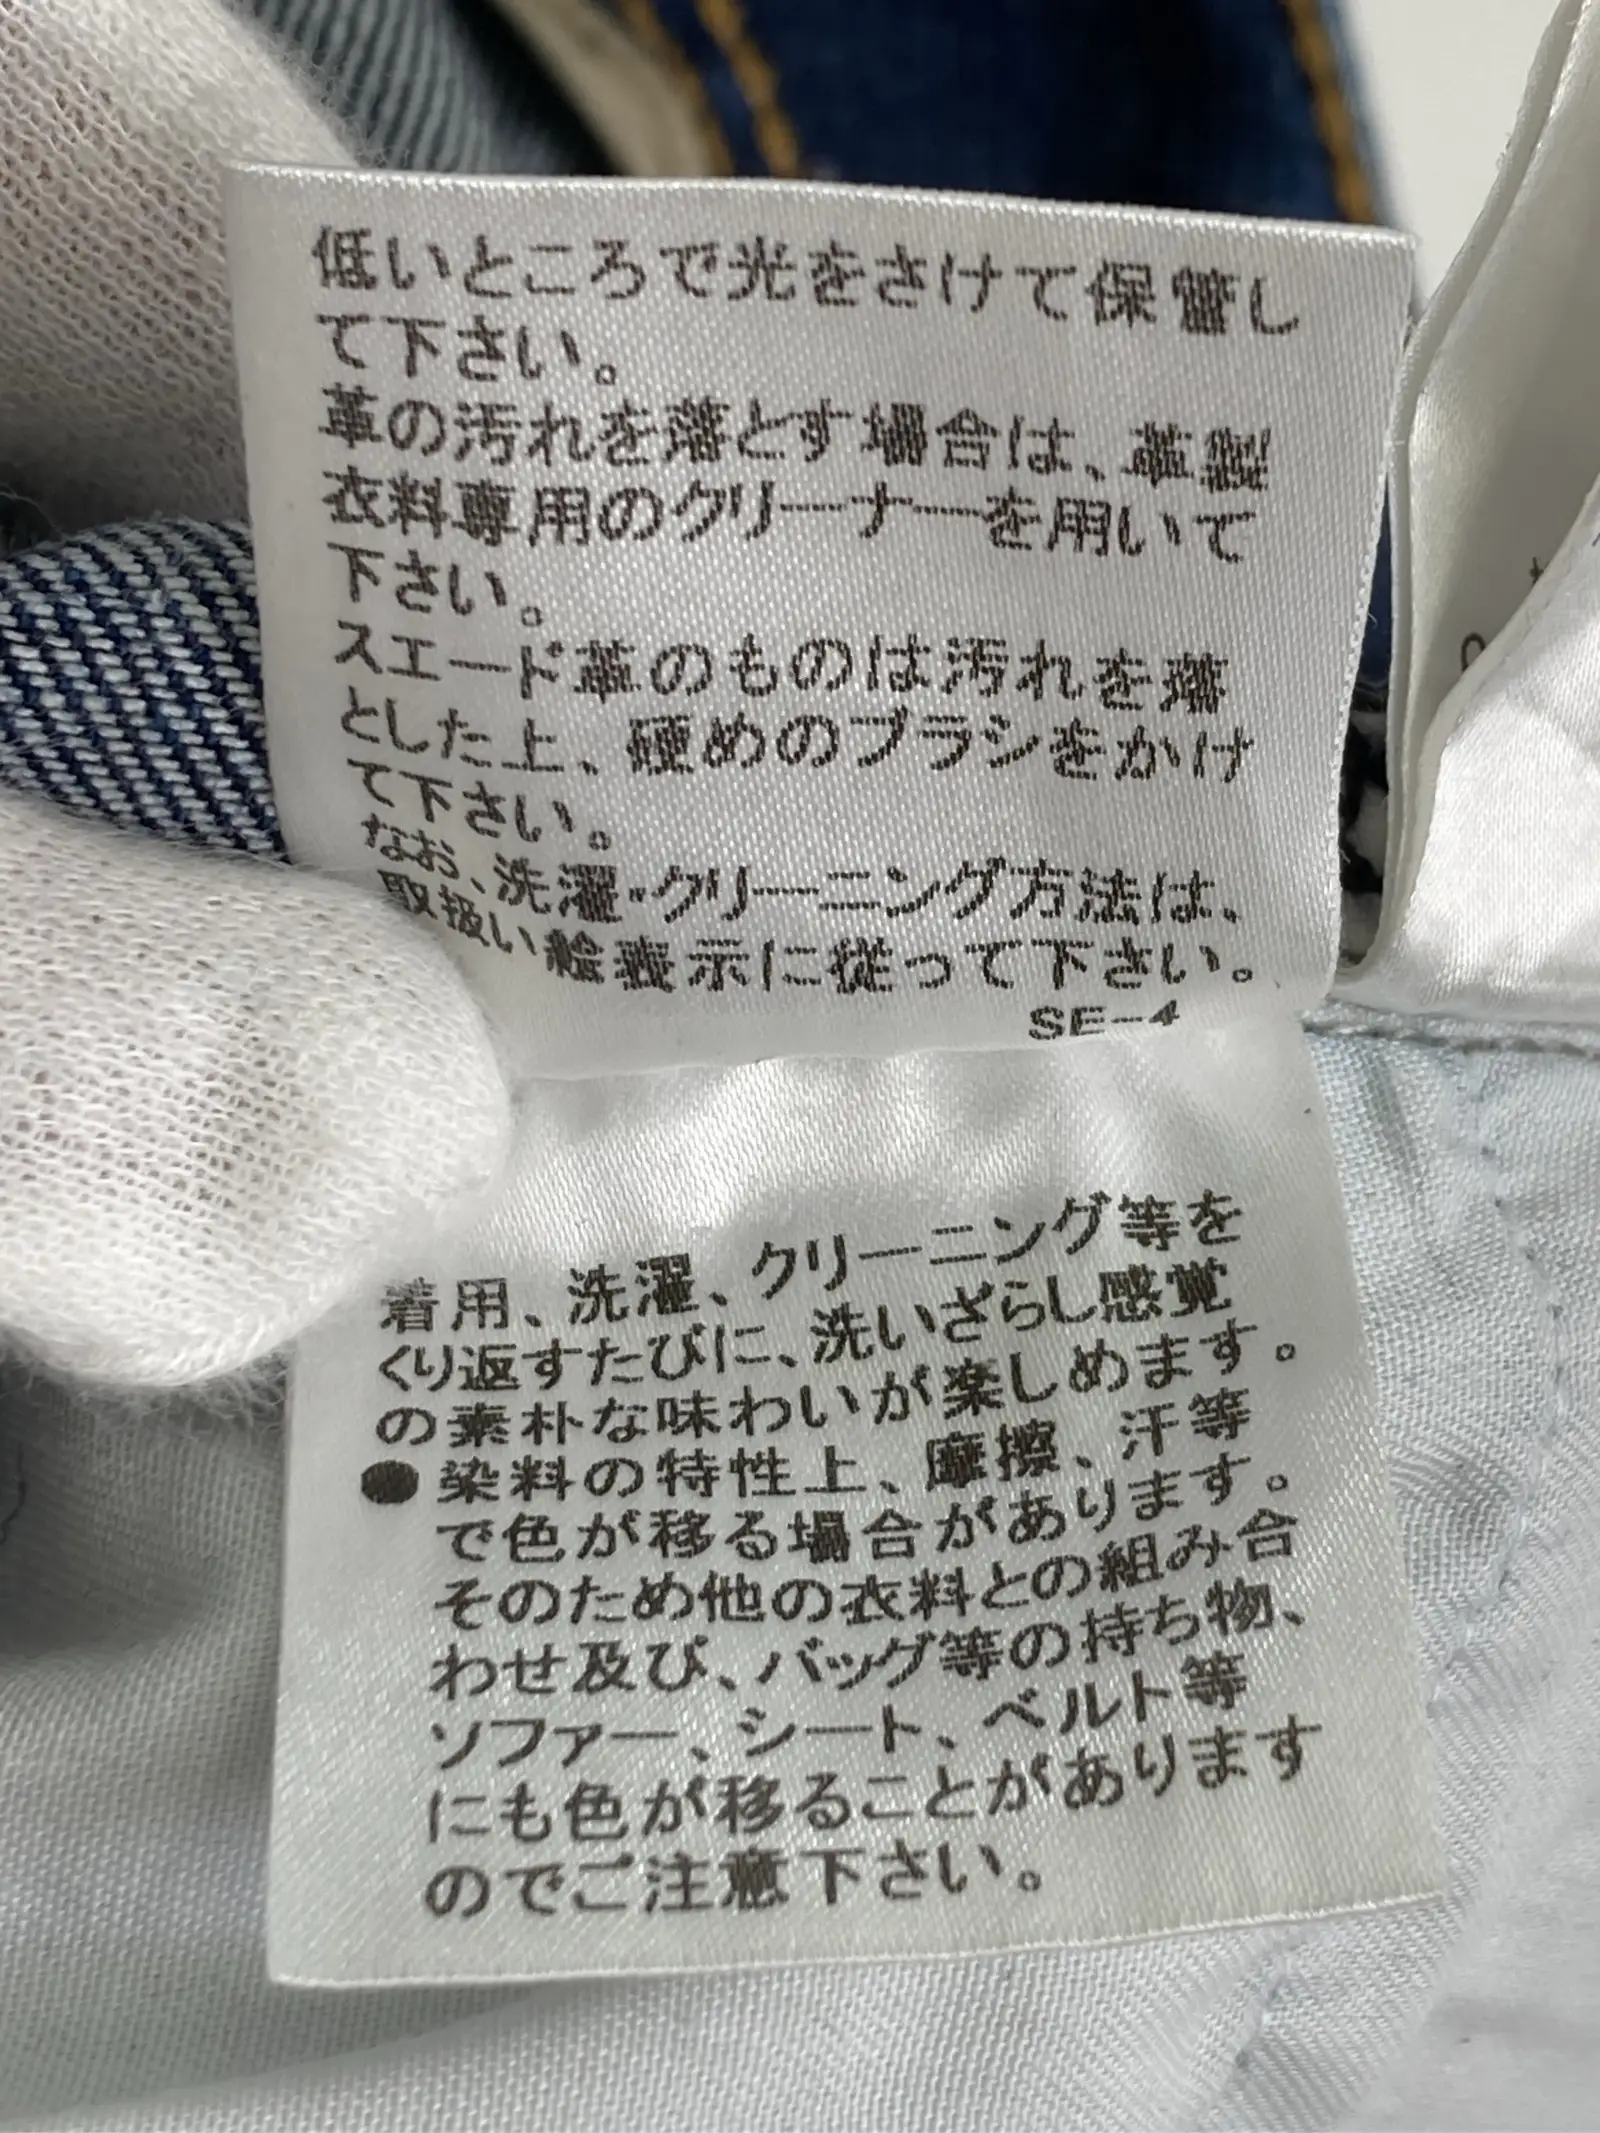 低いところで光をさけて保管し
て下さい。
革の汚れを落とす場合は、革製
衣料専用のクリーナーを用いて
下さい。
スエード革のものは汚れを落
とした上、硬めのブラシをかけ
て下さい。
なお、洗濯・クリーニング方法は、
取扱い絵表示に従って下さい。
SE-4
着用、洗濯、クリーニング等を
くり返すたびに、洗いざらし感覚
の素朴な味わいが楽しめます。
●染料の特性上、摩擦、汗等
で色が移る場合があります。
そのため他の衣料との組み合
わせ及び、バッグ等の持ち物、
ソファー、シート、ベルト等
にも色が移ることがあります
のでご注意下さい。